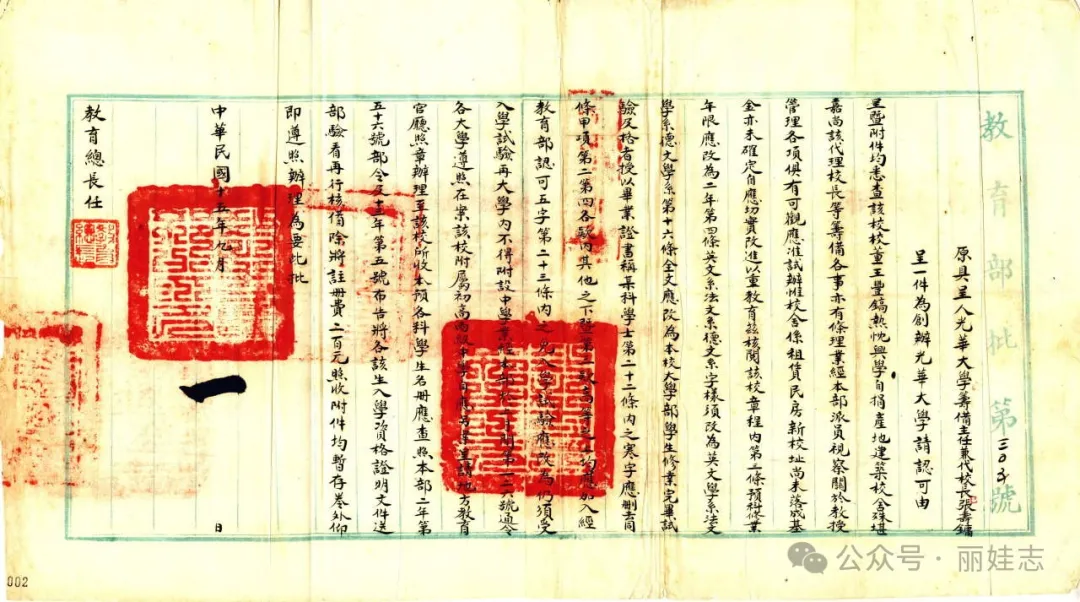 教育部批第三〇五號
原具呈人光華大學籌備主任兼代校長張壽鏞
呈一件為創辦光華大學請認可由
呈暨附件均悉查該校校董王豐鎬熱忱興學自捐產地建築校舍殊堪
嘉尚該代理校長等籌備各事亦有條理業經本部派員視察關於教授
管理各項俱有可觀應准試辦惟校舍係租賃民房新校址尚未落成基
金亦未確定自應切實改進以重教育茲核閱該校章程內第二條預科修業
年限應改為二年第四條英文系法文系德文系字樣須改為英文學系法文
學系德文學系第十六條全文應改為本校大學部學生修業完畢試
驗及格者授以畢業證書稱某科學士第二十二條內之寒字應刪去同
條甲項第二第四各款內其他之下暨第款高等之上均應加入經
教育部認可五字第二十三條內之免入學試驗應改為仍須受
入學試驗再大學內不得附設中學業經本部於年間第一二六號通令
各大學遵照在案該校附屬初高兩級中學自應另呈請地方教育
官廳照章辦理至該校所收本預各科學生名冊應查照本部二年第
五十六號部令及十三年第五號布告將各該生入學資格證明文件送
部驗看再行核備除將註冊費二百元照收附件均暫存卷外仰
即遵照辦理為要此批
中華民國十五年九月 日
教育總長任
002
公众号·丽娃志